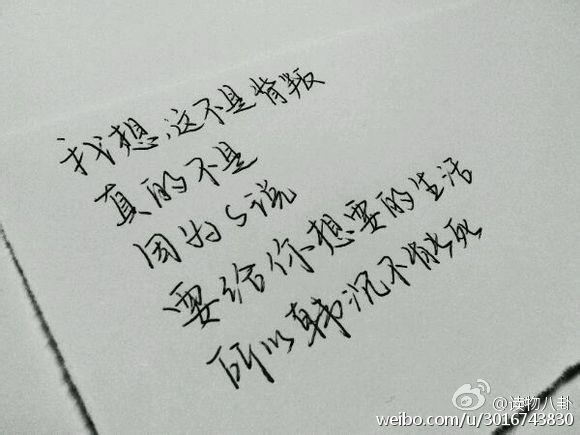 我想,这不是背叛
真的不是
因为S说
要给你想要的生活
所以韩沉不能死
@读物八卦
weibo.com/u/3016743830